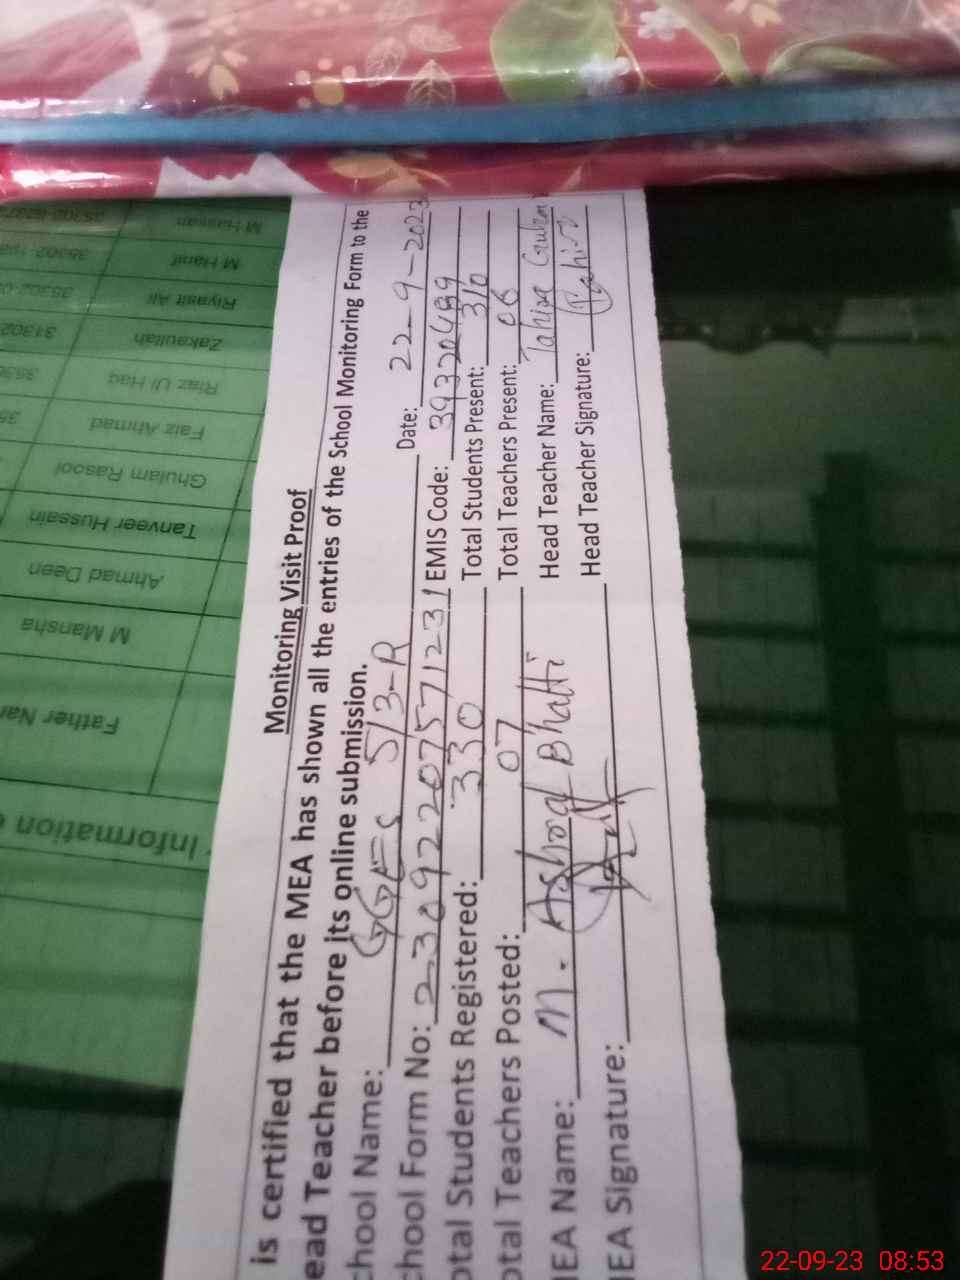 Monitoring Visit Proof
is certified that the MEA has shown all the entries of the School Monitoring Form to the
ead Teacher before its online submission.
chool Name: GGES 5/3-R Date: 22-9-2023
chool Form No: 23092207571231 EMIS Code: 39320499
otal Students Registered: 330 Total Students Present: 310
otal Teachers Posted: 07 Total Teachers Present: 06
IEA Name: M. Ashraf Bhatti Head Teacher Name: Tahira
IEA Signature: Head Teacher Signature: Tahira
Information
Father Nar
M Mansha
Ahmad Deen
Tanveer Hussain
Ghulam Rasool
Faiz Ahmad
Riaz Ul Haq
Zakaullah 31302
Riyasit Ali 35302-0
M Hanif 35302
M Hassan
22-09-23 08:53